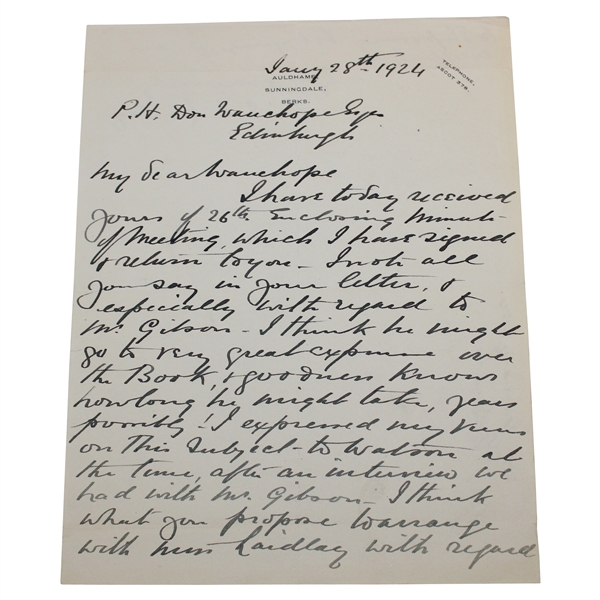 Jany 28th 1924
AULDHAME,
SUNNINGDALE,
BERKS.
TELEPHONE,
ASCOT 378.
P. H. Don Wauchope Esqr
Edinburgh
My dear Wauchope
I have today received
yours of 26th Enclosing Minute
of Meeting, which I have signed
& return to you – I note all
you say in your letter, &
especially with regard to
Mr Gibson – I think he might
go to very great expense over
the Book, & goodness knows
how long he might take, years
possibly! I expressed my views
on this subject – to Watson at
the time, after an interview we
had with Mr. Gibson – I think
what you propose to arrange
with Miss Laidlay with regard